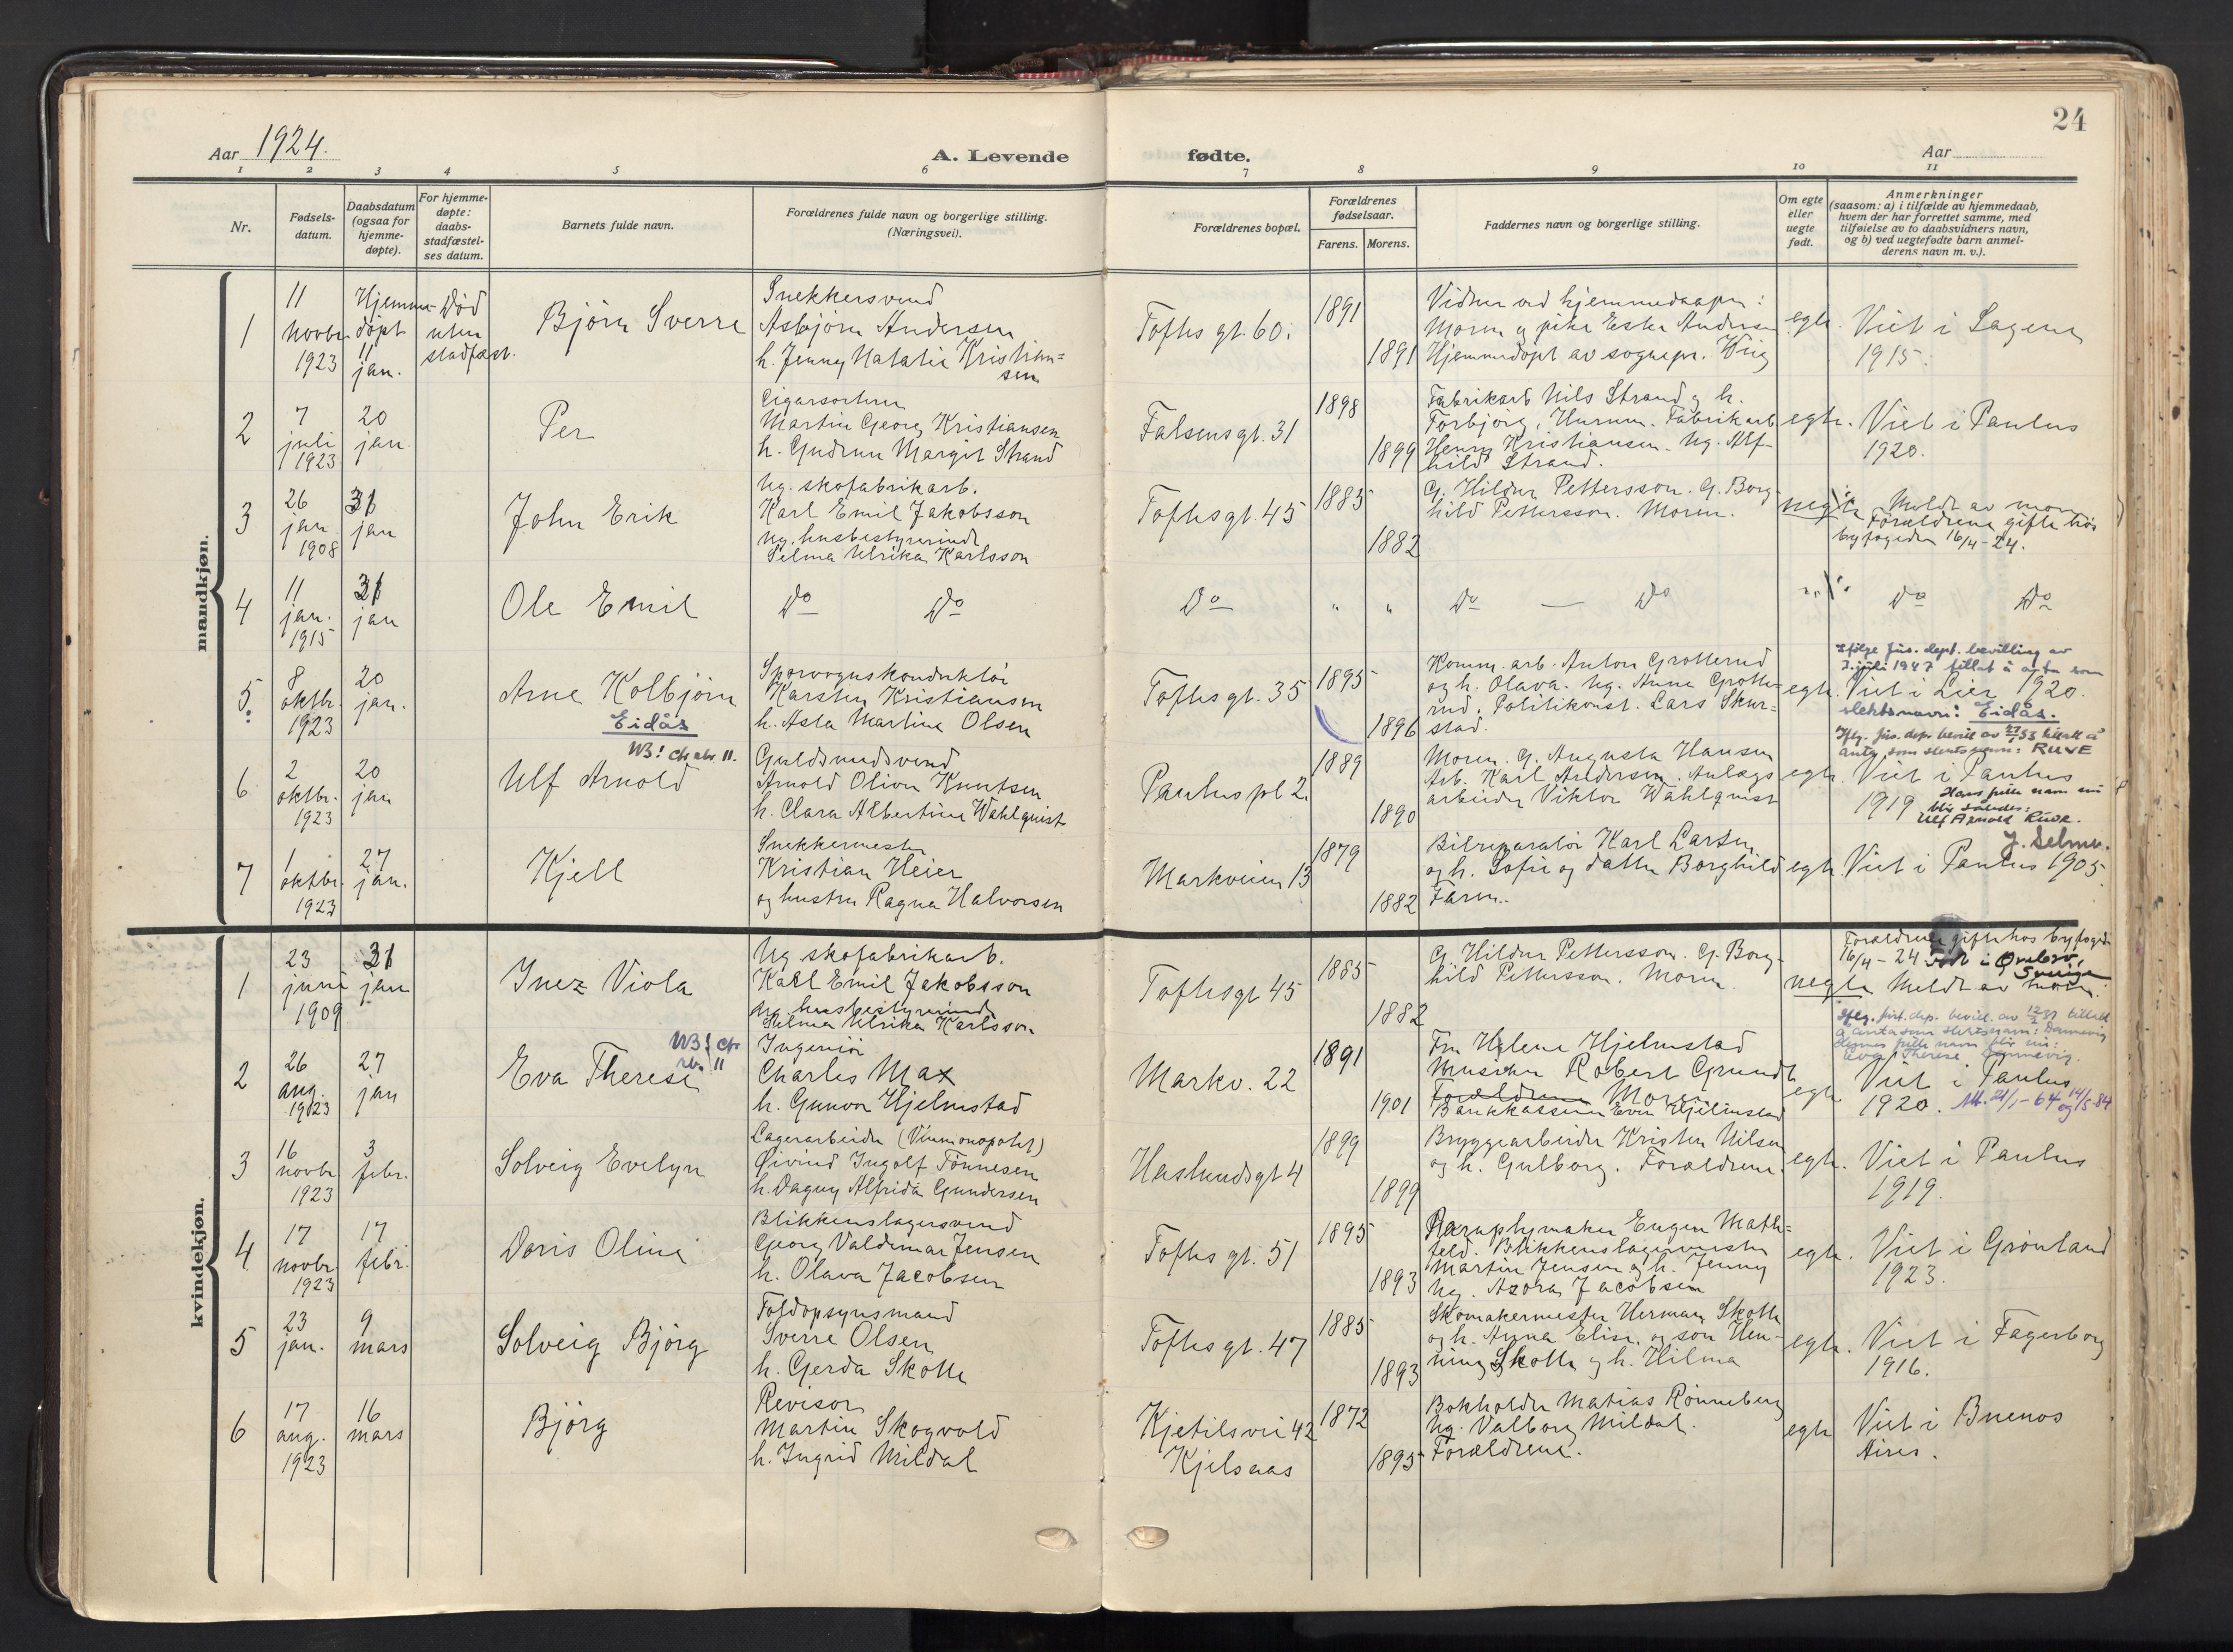 24
Aar 1924.
A. Levende fødte.
Aar
1 2 3 4 5 6 7 8 9 10 11
Nr.
Fødsels-
datum.
Daabsdatum
(ogsaa for
hjemme-
døpte).
For hjemme-
døpte:
daabs-
stadfæstel-
ses datum.
Barnets fulde navn.
Forældrenes fulde navn og borgerlige stilling.
(Næringsvei).
Forældrenes bopæl.
Forældrenes
fødselsaar.
Farens. Morens.
Faddernes navn og borgerlige stilling.
Om egte
eller
uegte
født.
Anmerkninger
(saasom: a) i tilfælde av hjemmedaab,
hvem der har forrettet samme, med
tilføielse av to daabsvidners navn,
og b) ved uegtefødte barn anmel-
derens navn m. v.).
mandkjøn.
1
11
novbr.
1923
Hjemme-
døpt
11
jan.
Død
uten
stadfæst.
Bjørn Sverre
Snekkersvend
Asbjørn Andersen
h. Jenny Natalie Kristian=
sen
Toftes gt. 60.
1891
1891
Vidner ved hjemmedaapen:
Moren og pike Ester Andersen
Hjemmedøpt av sognepr. Wiig
egte.
Viet i Sagene
1915.
2
7
juli
1923
20
jan.
Per
Cigarsorterer
Martin Georg Kristiansen
h. Gudrun Margit Strand
Falsensgt. 31
1898
1899
Fabrikarb Nils Strand og h.
Torbjørg, Hurum. Fabrikarb
Henry Kristiansen. Ug. Alf-
hild Strand.
egte.
Viet i Paulus
1920.
3
26
jan
1908
31
jan
John Erik
Ug. skofabrikarb.
Karl Emil Jakobsson
Ug. husbestyrerinde
Selma Ulrika Karlsson
Toftesgt. 45
1885
1882
G. Hildur Pettersson. G. Borg-
hild Pettersson. Moren.
uegte
Meldt av mor
Forældrene gifte hos
byfogden 16/4-24.
4
11
jan.
1915
31
jan
Ole Emil
Do Do
Do
" "
Do — Do
" "
Do Do
5
8
oktbr.
1923
20
jan.
Arne Kolbjørn
Eidås
Sporvognskonduktør
Karsten Kristiansen
h. Asta Martine Olsen
Toftesgt. 35
1895
1896
Komm. arb. Anton Grotterud
og h. Olava. Ug. Anna Grotte-
rud. Politikonst. Lars Skur=
stad.
egte.
Ifølge jus. dept. bevilling av
7. juli 1947 tillat å anta som
Viet i Lier 1920.
slektsnavn: Eidås.
6
2
oktbr.
1923
20
jan
NB! cfr. rubr. 11.
Ulf Arnold
Guldsmedsvend
Arnold Oliver Knutsen
h. Clara Albertine Wahlquist
Paulus pl 2.
1889
1890
Moren. G. Augusta Hansen
Arb. Karl Andersen. Anlægs
arbeider Viktor Wahlquist
egte.
antg som slektsnavn: RUVE
Viet i Paulus
1919
Hans fulle navn nu
blir således:
Ulf Arnold Ruve.
J. Selmer.
7
1
oktbr.
1923
27
jan.
Kjell
Snekkermester
Kristian Heier
og hustru Ragna Halvorsen
Markveien 13
1879
1882
Bilreparatør Karl Larsen
og h. Sofie og datter Borghild
Faren.
egte
Viet i Paulus 1905.
kvindekjøn.
1
23
juni
1909
31
jan
Inez Viola
Ug skofabrikarb.
Karl Emil Jakobsson
Ug. husbestyrerinde
Selma Ulrika Karlsson
Toftesgt 45
1885
1882
G. Hildur Pettersson. G. Borg-
hild Pettersson. Moren
uegte
Forældrene gifte hos byfogden
16/4-24 Født i Ørebro,
Sverige
Meldt av mor.
2
26
aug.
1923
27
jan
NB! cfr.
rubr. 11
Eva Therese
Ingeniør
Charles Max
h. Gunvor Hjelmstad
Markv. 22
1891
1901
Fru Helene Hjelmstad
Musiker Robert Grundt
Forældrene Moren
Bankkasserer Even Hjelmstad
egte.
Iflg. just. dep. bevil. av 12/2 37 tillatt
å anta som slektsnavn: Dannevig
Hennes fulle navn blir nu:
Eva Therese Dannevig.
Viet i Paulus
1920. Att. 21/1-64 og 14/5-84
3
16
novbr.
1923
3
febr.
Solveig Evelyn
Lagerarbeider (Vinmonopolet)
Øivind Ingolf Tønnesen
h. Dagny Alfrida Gundersen
Haslundsgt 4
1899
1899
Bryggearbeider Kristen Nilsen
og h. Gulborg. Forældrene.
egte.
Viet i Paulus
1919.
4
17
novbr.
1923
17
febr.
Doris Oline
Blikkenslagersvend
Georg Valdemar Jensen
h. Olava Jacobsen
Toftes gt. 51
1895
1893
Paraplymaker Eugen Math=
feld. Blikkenslagermester
Martin Jensen og h. Jenny
Ug. Azora Jacobsen
egte.
Viet i Grønland
1923.
5
23
jan.
9
mars
Solveig Bjørg
Toldopsynsmand
Sverre Olsen
h. Gerda Skotte
Toftes gt. 47
1885
1893
Skomakermester Herman Skotte
og h. Anna Elise. og søn Hen-
ning Skotte og h. Hilma
egte.
Viet i Fagerborg
1916.
6
17
aug.
1923
16
mars
Bjørg
Revisor
Martin Skogvold
h. Ingrid Mildal
Kjetilsvei 42
Kjelsaas
1872
1895
Bokholder Matias Rønneberg
Ug. Valborg Mildal.
Forældrene.
egte
Viet i Buenos
Aires.